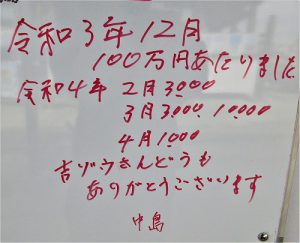 令和3年12月
100万円あたりました
令和4年 2月3,000
3月3,000、10,000
4月1,000
吉ゾウさんどうも
ありがとうございます
中島